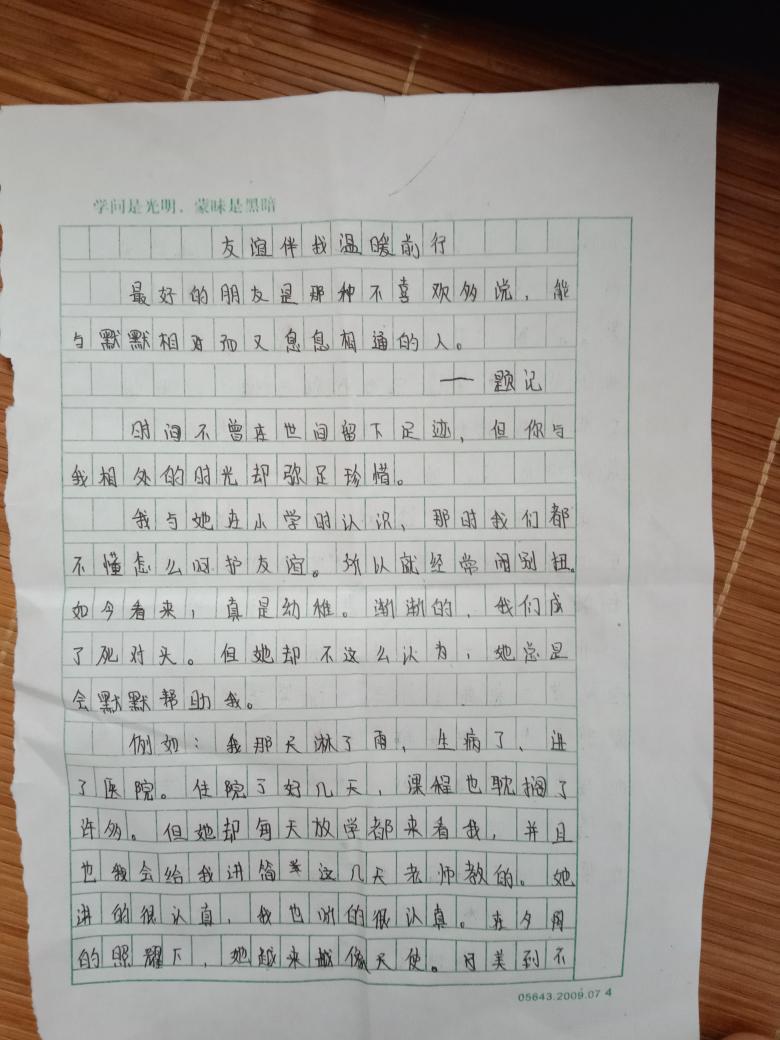 学问是光明，蒙昧是黑暗
友谊伴我温暖前行
最好的朋友是那种不喜欢多说，能
与默默相对而又息息相通的人。
——题记
时间不曾在世间留下足迹，但你与
我相处的时光却弥足珍惜。
我与她在小学时认识，那时我们都
不懂怎么呵护友谊。所以就经常闹别扭。
如今看来，真是幼稚。渐渐的，我们成
了死对头。但她却不这么认为，她总是
会默默帮助我。
例如：我那天淋了雨，生病了、进
了医院。住院了好几天，课程也耽搁了
许多。但她却每天放学都来看我，并且
也我会给我讲简单这几天老师教的。她
讲的很认真，我也听的很认真。在夕阳
的照耀下，她越来越像天使。因美到不
05643.2009.07 4